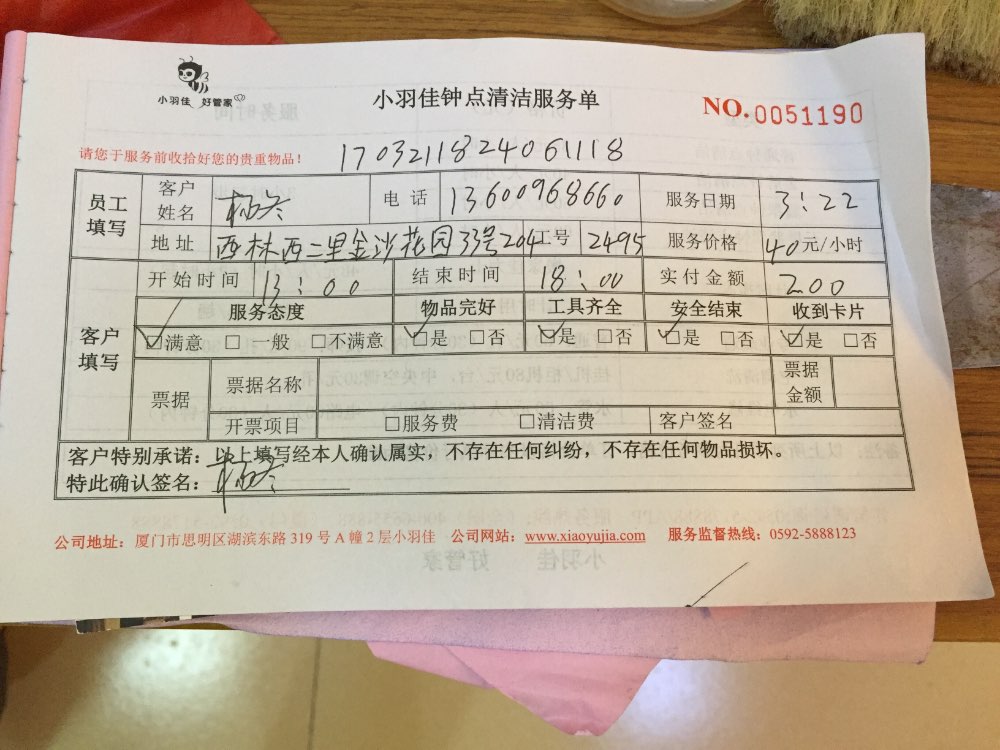 小羽佳 好管家
小羽佳钟点清洁服务单
NO.0051190
请您于服务前收拾好您的贵重物品!
1703211824061118
员工填写 客户姓名 电话 13600968660 服务日期 3:22
地址 西林西二里金沙花园33号204 工号 2495 服务价格 40元/小时
客户填写 开始时间 13:00 结束时间 18:00 实付金额 200
服务态度 物品完好 工具齐全 安全结束 收到卡片
☑满意 □一般 □不满意 ☑是 □否 ☑是 □否 ☑是 □否 ☑是 □否
票据 票据名称 票据金额
开票项目 □服务费 □清洁费 客户签名
客户特别承诺:以上填写经本人确认属实,不存在任何纠纷,不存在任何物品损坏。
特此确认签名:
公司地址:厦门市思明区湖滨东路 319 号 A 幢 2 层小羽佳 公司网站:www.xiaoyujia.com 服务监督热线:0592-5888123